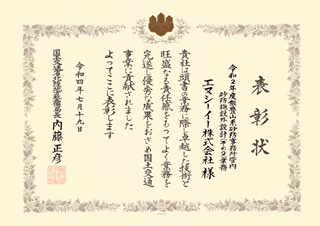 表彰状
令和2年度能登山系砂防事務所管内
砂防施設外設計(その2)業務
エマシーイー株式会社 様
貴社は頭書の業務に際し卓越した技術と
旺盛なる責任感をもつてよく業務を
完遂し優秀な成果をおさめ国土交通
事業に貢献されました
よつてここに表彰します
令和四年七月十九日
国土交通省北陸地方整備局長 内藤正彦